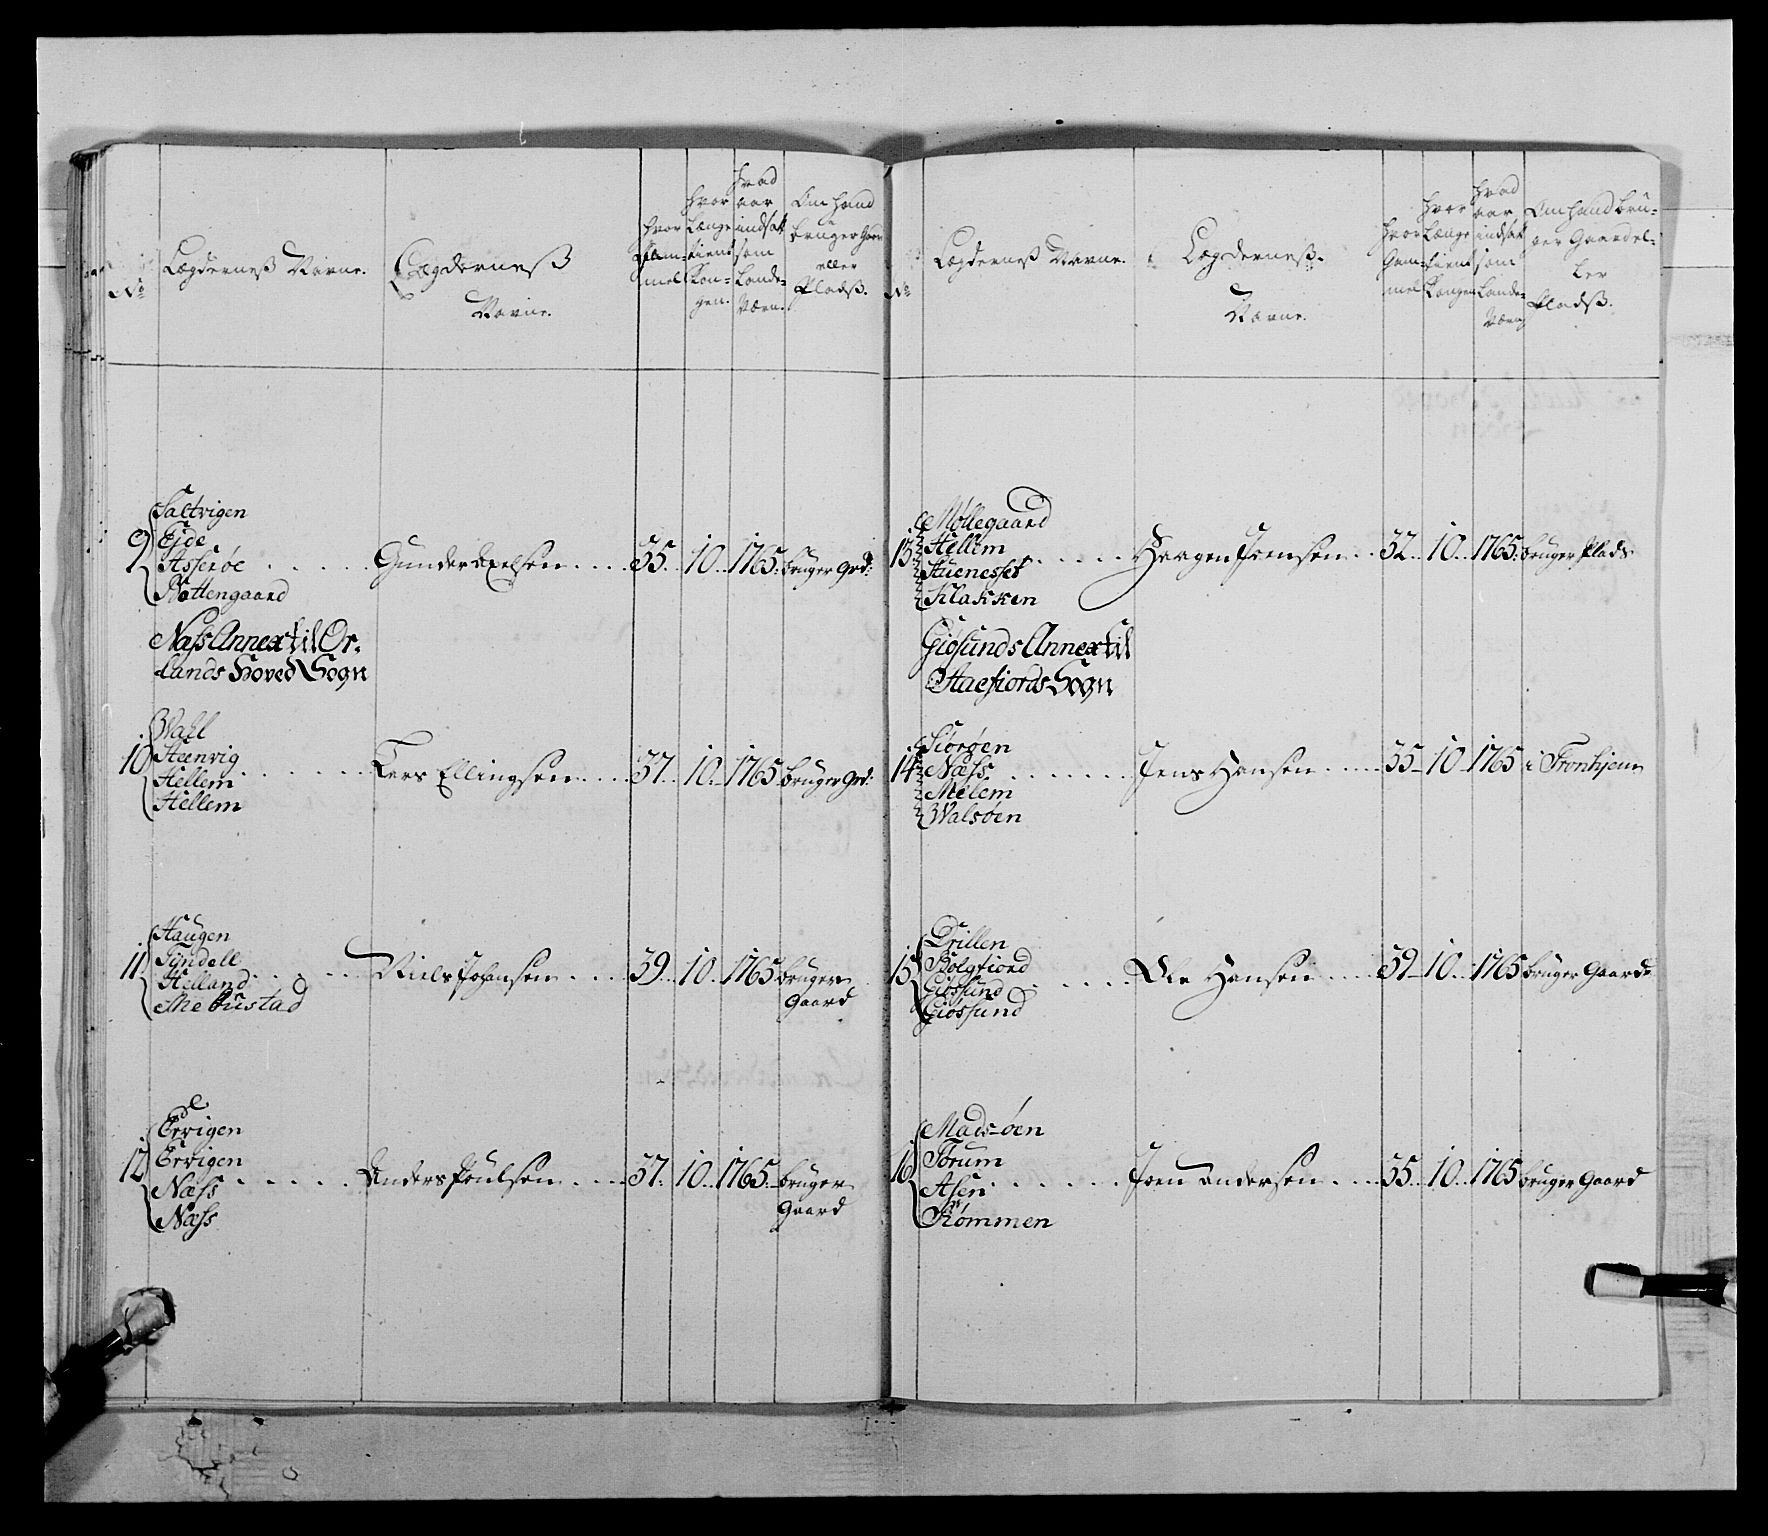 No
Lægderneß Navne.
Lægderneß
Navne.
hvor
gam-
mel
hvor
Længe
tient
Kon-
gen.
hvad
aar
indsat
som
Lande-
Værn.
Om hand
bruger Gaard
eller
Pladß.
9
Saltvigen
Eide
Asserøe . . . . .
Røttengaard
Gunder Axelsen . . . . 35. 10. 1765. bruger Grd:
Næss Annex til Ør-
lands Hoved Sogn
10
Wall
Steenvig
Hellem . . . . . .
Hellem
Lers Ellingsen . . . . 37. 10. 1765 bruger Grd:
11
Haugen
Tyndell
Helland . . . . .
Mebustad
Niels Johansen . . . . 39. 10. 1765 bruger
Gaard
12
Ervigen
Ervigen
Næss . . . . .
Næss
Anders Poulsen . . . . 37. 10. 1765. bruger
Gaard
No
Lægderneß Navne.
Lægderneß.
Navne.
hvor
gam-
mel
hvor
Længe
tient
Kongen
hvad
aar
indsat
som
Lande-
Værn
Om hand bru-
ger Gaard el-
ler
Pladß.
13
Møllegaard
Hellem
Stuenesset . . . . .
Klakken
Haagen Joensen . . 32. 10. 1765. bruger Plads
Giøsunds Annex til
Sogn
14
Siørøen
Næss . . . . . . .
Melem
Walsøen
Jens Hansen . . . . 35 10 1765 i Tronhjem
15
Drillen
Bolgfiord
Giøssund . . . . .
Giøssund
Ole Hansen . . . . 39 10. 1765 bruger Gaard
16
Madsøen
Torum
Asen . . . . . .
Strømmen
Joen Andersen . . . . 35. 10. 1765 bruger Gaard